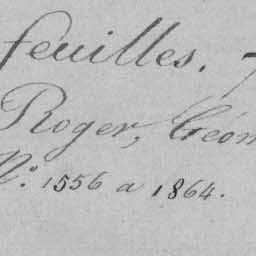 feuilles.
Roger, Géom
N.º 1556 a 1864.